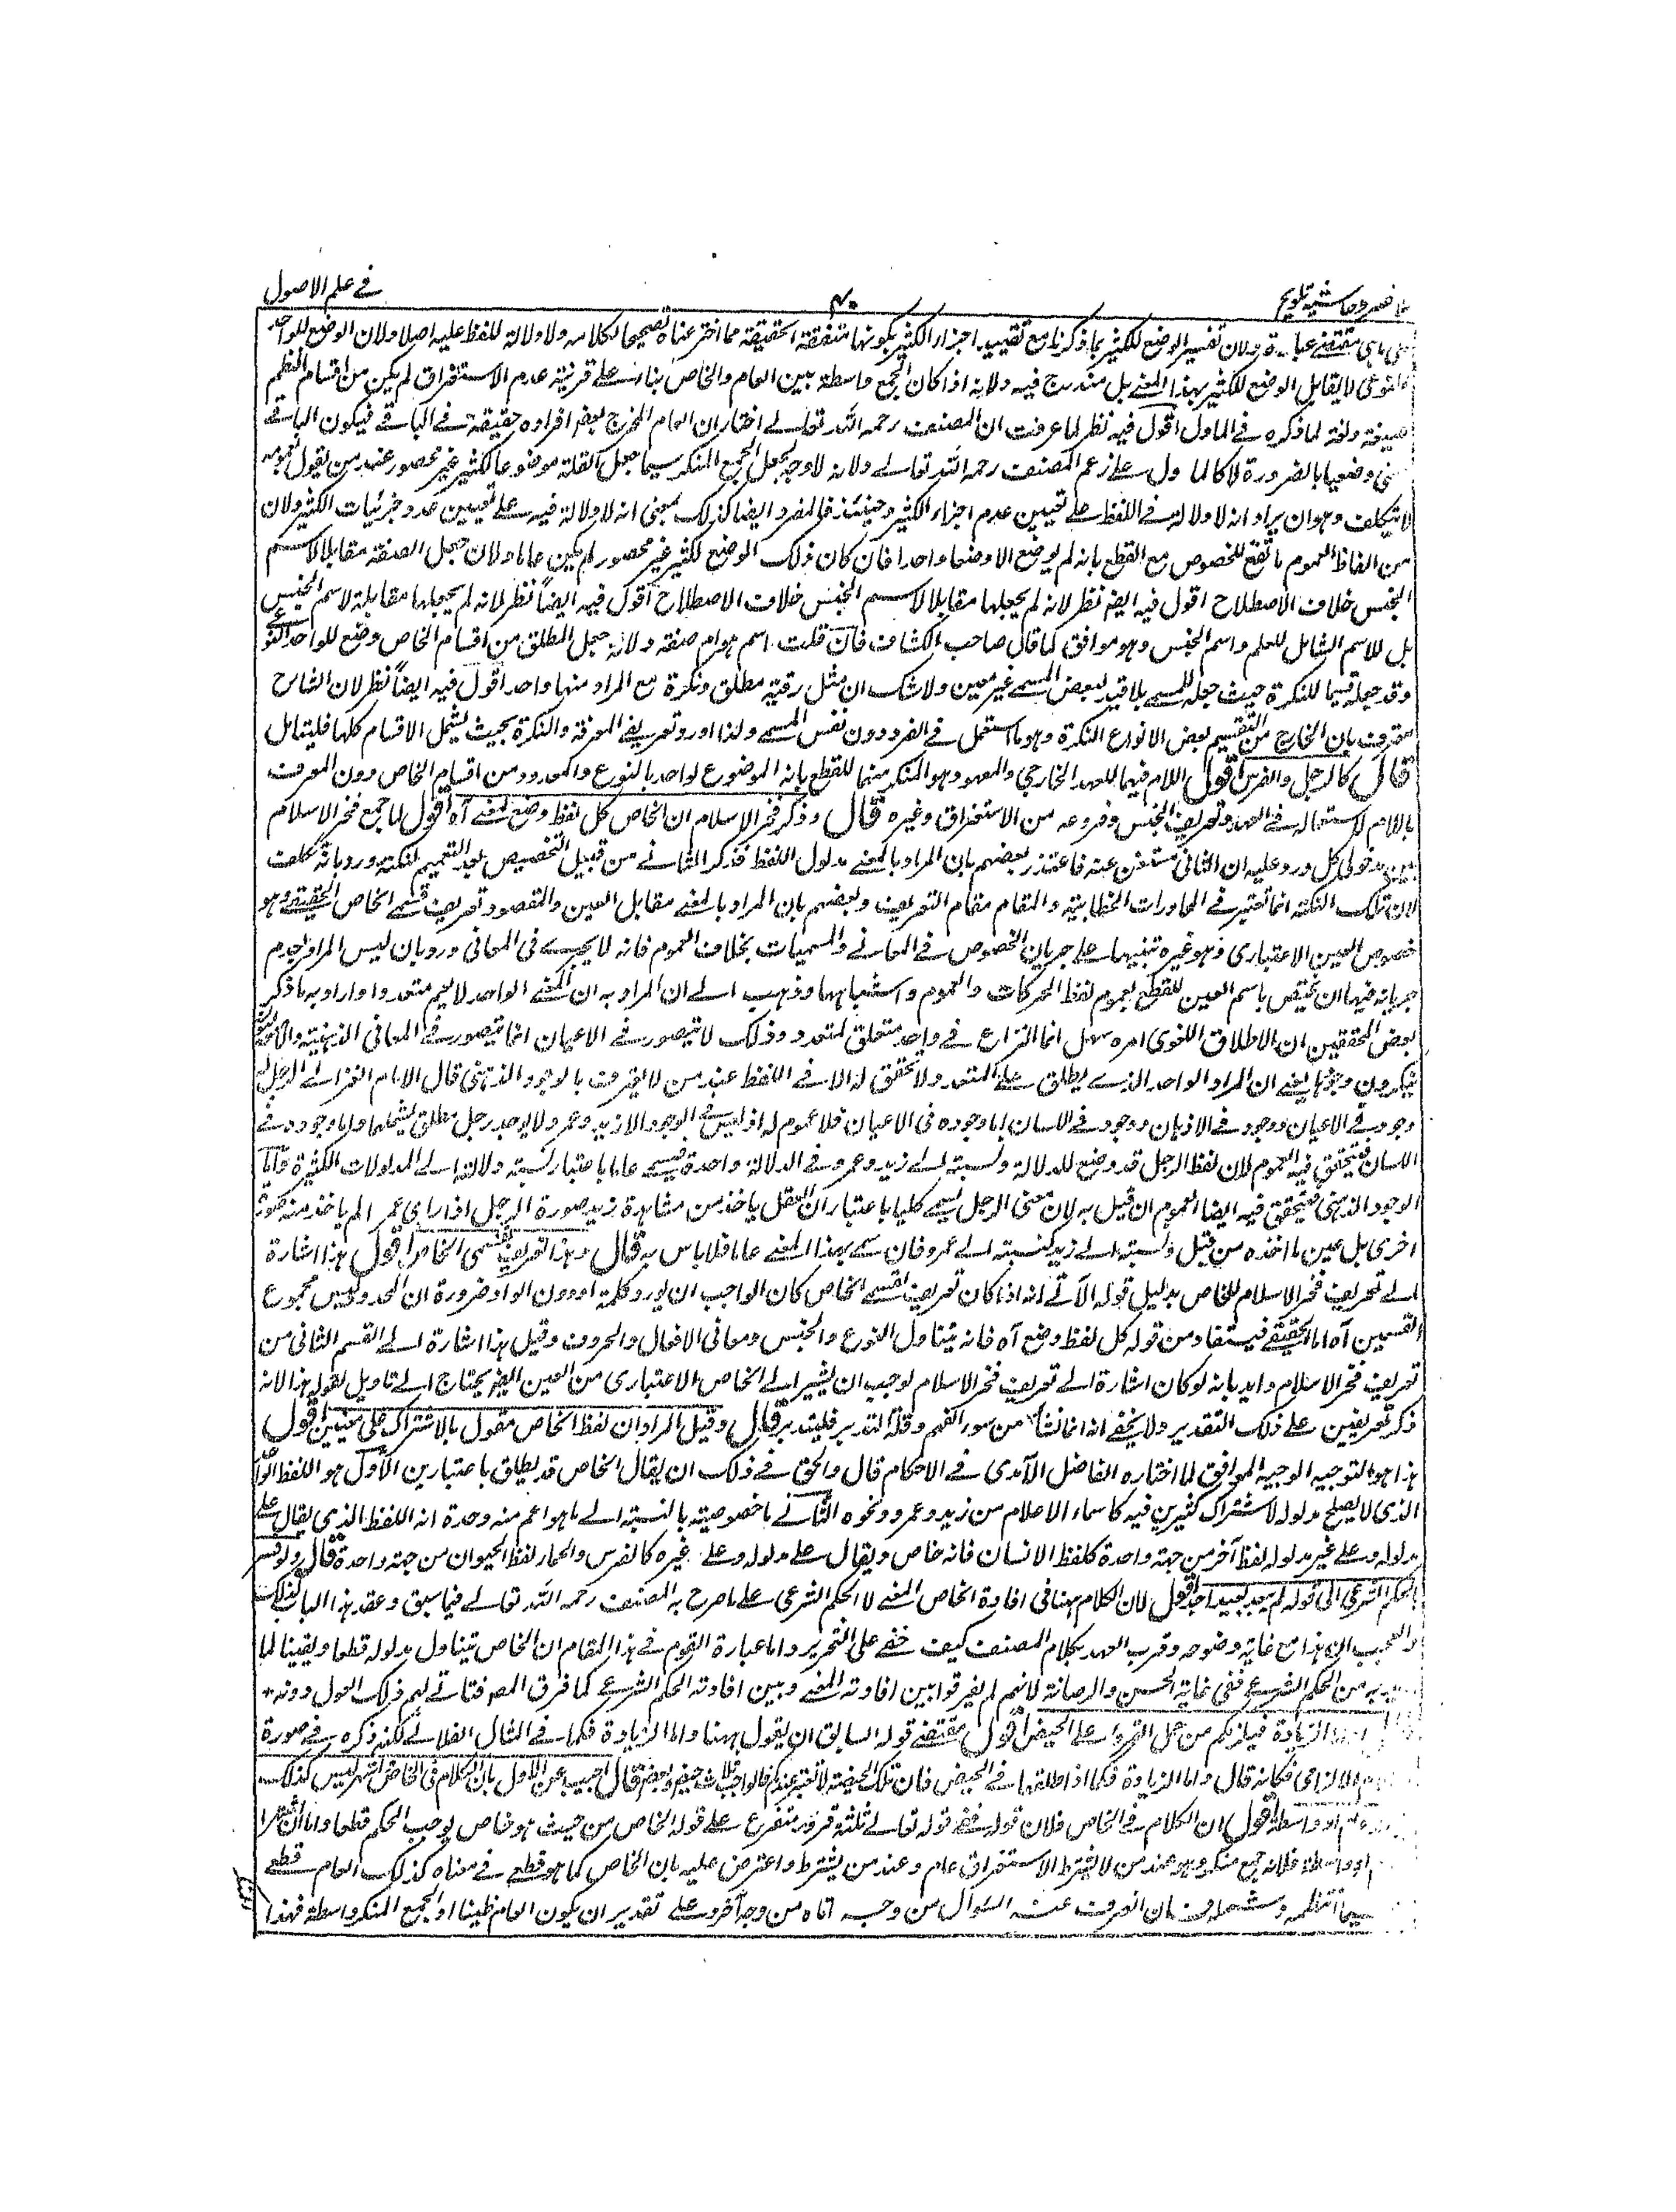 حاشيه تلويح ۴۰ في علم الاصول
مقتضى عبارته ولان تفسير الوضع للكثير بما ذكرنا مع تقييد اجزاء الكثير بكونها متفقة الحقيقة مما اخترعناه تصحيحا لكلامه ولا دلالة للفظ عليه اصلا ولان الوضع للواحد
النوعي لا يقابل الوضع للكثير بهذا المعنے بل مندرج فيه ولانه اذا كان الجمع واسطة بين العام والخاص بناء علے قرينة عدم الاستغراق لم يكن من اقسام النظم
صيغة ولغة لما ذكره في الماول اقول فيه نظر لما عرفت ان المصنف رحمه الله تعالے اختار ان العام المخرج بعض افراده حقيقة في الباقے فيكون الباقے
وضعيا بالضرورة لا كالماول علے زعم المصنف رحمه الله تعالے ولانه لا وجه لجعل الجمع المنكر سيما جمع القلة موضوعا لكثير غير محصور عند من يقول بعمومه
الا بتكلف وهو ان يراد انه لا دلالة في اللفظ علے تعيين عدد اجزاء الكثير وحينئذ فالمفرد ايضا كذلك بمعنى انه لا دلالة فيه علے تعيين عدد جزئيات الكثير ولان
من الفاظ العموم ما تقع للخصوص مع القطع بانه لم يوضع الا وضعا واحدا فان كان ذلك الوضع لكثير غير محصور لم يكن عاما ولان جعل الصفة مقابلا لاسم
الجنس خلاف الاصطلاح اقول فيه ايضا نظر لانه لم يجعلها مقابلا لاسم الجنس خلاف الاصطلاح اقول فيه ايضاً نظر لانه لم يجعلها مقابلة لاسم الجنس
بل للاسم الشامل للعلم واسم الجنس وهو موافق لما قال صاحب الكشاف فان قلت اسم هو ام صفة ولانه جعل المطلق من اقسام الخاص وضع للواحد النوعي
وقد جعله قسيما للنكرة حيث جعله للمسمے بلا قيد لبعض المسمے غير معين ولا شك ان مثل رقبة مطلق ونكرة مع المراد منها واحد اقول فيه ايضاً نظر لان الشارح
معترف بان الخارج من التقسيم بعض الانواع النكرة وهو ما استعمل في الفرد دون نفس المسمے ولذا اورد تعريفے المعرفة والنكرة بحيث يشمل الاقسام كلها فليتامل
قال كالرجل والفرس اقول اللام فيهما للعهد الخارجي والمعهود هو المنكر منهما للقطع بانه الموضوع لواحد بالنوع والمعدود من اقسام الخاص دون المعرف
باللام لاستعماله في العهد وتعريف الجنس وفروعه من الاستغراق وغيره قال وذكر فخر الاسلام ان الخاص كل لفظ وضع لمعنے آه اقول لما جمع فخر الاسلام
بين مدخولی كل ورد عليه ان الثاني مستغن عنه فاعتذر بعضهم بان المراد بالمعنے مدلول اللفظ فذكر الثانے من قبيل التخصيص بعد التعميم لنكتة ورد بانه تكلف
لان تلك النكتة انما تعتبر في المحاورات الخطابية والمقام مقام التعريف وبعضهم بان المراد بالمعنے مقابل العين والمقصود تعريف قسمے الخاص الحقيقے وهو
خصوص العين والاعتباري وهو غيره تنبيها علے جريان الخصوص في المعانے والمسميات بخلاف العموم فانه لا يجرے في المعاني ورد بان ليس المراد بعدم
جريانه فيها ان يختص باسم العين للقطع بعموم لفظ الحركات والعموم واشباهها وذهب الے ان المراد به ان المعنے الواحد لا يعم متعددا واراد به ما ذكر
بعض المحققين ان الاطلاق اللغوي امره سهل انما النزاع في واحد متعلق لمتعدد وذلك لا يتصور في الاعيان انما يتصور في المعاني الذهنية والاصوليون
ينكرون وجودها يعنے ان المراد الواحد الذے يطلق علے المتعدد ولا تحقق له الا في اللفظ عند من لا يعترف بالوجود الذهني قال الامام الغزالے الرجل له
وجود في الاعيان ووجود في الاذهان ووجود في اللسان اما وجوده في الاعيان فلا عموم له اذ ليس في الوجود الا زيد وعمرو ولا يوجد رجل مطلق يشملهما واما وجوده في
اللسان فيتحقق فيه العموم لان لفظ الرجل قد وضع للدلالة ونسبته الے زيد وعمرو في الدلالة واحدة فيسمے عاما باعتبار نسبته دلالته الے المدلولات الكثيرة واما
الوجود الذهني فيتحقق فيه ايضا العموم ان قيل به لان معنى الرجل يسمے كليا باعتبار ان العقل ياخذ من مشاهدة زيد صورة الرجل اذا راى عمرا لم ياخذ منه صورة
اخرى بل عين ما اخذه من قبل ونسبته الے زيد كنسبته الے عمرو فان سمے بهذا المعنے عاما فلا باس به قال وهذا تعريف لقسمى الخاص اقول هذا اشارة
الے تعريف فخر الاسلام للخاص بدليل قوله الآتے انه اذا كان تعريف لقسمے الخاص كان الواجب ان يورد كلمة او دون الواو ضرورة ان المحدود ليس مجموع
القسمين آه اما الحقيقے فيستفاد من قوله كل لفظ وضع آه فانه يتناول النوع والجنس ومعاني الافعال والحروف وقيل هذا اشارة الے القسم الثاني من
تعريف فخر الاسلام وايد بانه لو كان اشارة الے تعريف فخر الاسلام لوجب ان يشير الے الخاص الاعتباري من العين ايضا يحتاج الے تاويل لقوله هذا لانه
ذكر تعريفين علے ذلك التقدير ولا يخفے انه انما نشا من سوء الفهم وقلة التدبر فليتدبر قال وقيل المراد ان لفظ الخاص مقول بالاشتراك على معنيين اقول
هذا هو التوجيه الوجيه الموافق لما اختاره الفاضل الآمدي في الاحكام قال والحق في ذلك ان يقال الخاص قد يطلق باعتبارين الاول هو اللفظ الواحد
الذي لا يصلح مدلوله لاشتراك كثيرين فيه كاسماء الاعلام من زيد وعمرو ونحوه الثانے ما خصوصيته بالنسبة الے ما هو اعم منه وحدة انه اللفظ الذي يقال علے
مدلوله وعلى غير مدلوله لفظ آخر من جهة واحدة كلفظ الانسان فانه خاص ويقال علے مدلوله وعلے غيره كالفرس والحمار لفظ الحيوان من جهة واحدة قال ولو فسر
الحكم الشرعي الى قوله لم يبعد بعيدا جدا اقول لان الكلام ههنا في افادة الخاص المعنے لا الحكم الشرعي علے ما صرح به المصنف رحمه الله تعالے فيما سبق وعقد هذا الباب لذلك
والعجب ان هذا مع غاية وضوحه وقرب العهد بكلام المصنف كيف خفے على النحرير واما عبارة القوم في هذا المقام ان الخاص يتناول مدلوله قطعا ويقينا لما
اريد به من الحكم الشرعے ففي غاية الحسن والرصانة لانهم لم يفرقوا بين افادته المعنے وبين افادته الحكم الشرعے كما فرق المصنف تے لهم ذلك القول دونه
الزيادة فيلزمكم من حمل القروء علے الحيض اقول مقتضے قوله السابق ان يقول ههنا واما الزيادة فكما في المثال الفلانے لكنه ذكره في صورة
الالزامي فكانه قال واما الزيادة فكما اذا طلقتها في الحيض فان تلك الحيضة لا تعتبر عندكم فالواجب ثلاث حيض وبعض قال اجيب عن الاول بان الكلام في الخاص اشهر ليس كذلك
او واسطة اقول ان الكلام في الخاص فلان قوله ففے قوله تعالے ثلثة قروء متفرع علے قوله الخاص من حيث هو خاص يوجب الحكم قطعا واما ان اشهرا
او واسطة فلانه جمع منكر وهو عند من لا يشترط الاستغراق عام وعند من يشترط واعترض عليه بان الخاص كما هو قطعے في معناه كذلك العام قطعے
فيما انتظمه وشمله فان انصرف عنه السؤال من وجه اتاه من وجه آخر وعلے تقدير ان يكون العام ظنيا او الجمع المنكر واسطة فهذا